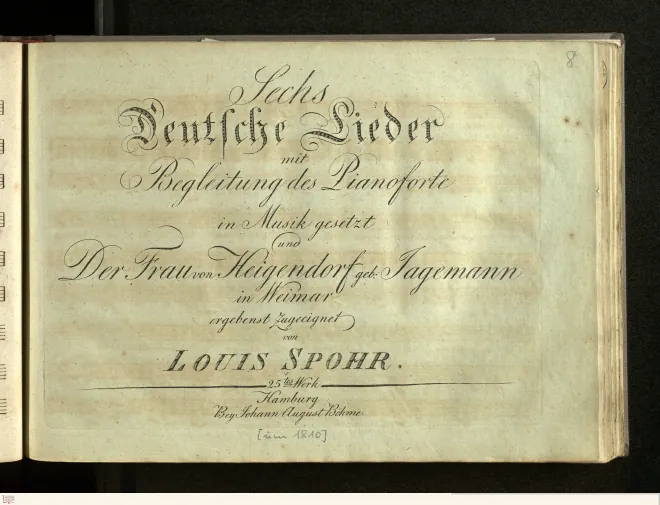 8
Sechs
Deutsche Lieder
mit
Begleitung des Pianoforte
in Musik gesetzt
und
Der Frau von Heigendorf geb. Jagemann
in Weimar
ergebenst zugeeignet
von
LOUIS SPOHR.
25tes Werk
Hamburg
Bey Johann August Böhme
[um 1810]